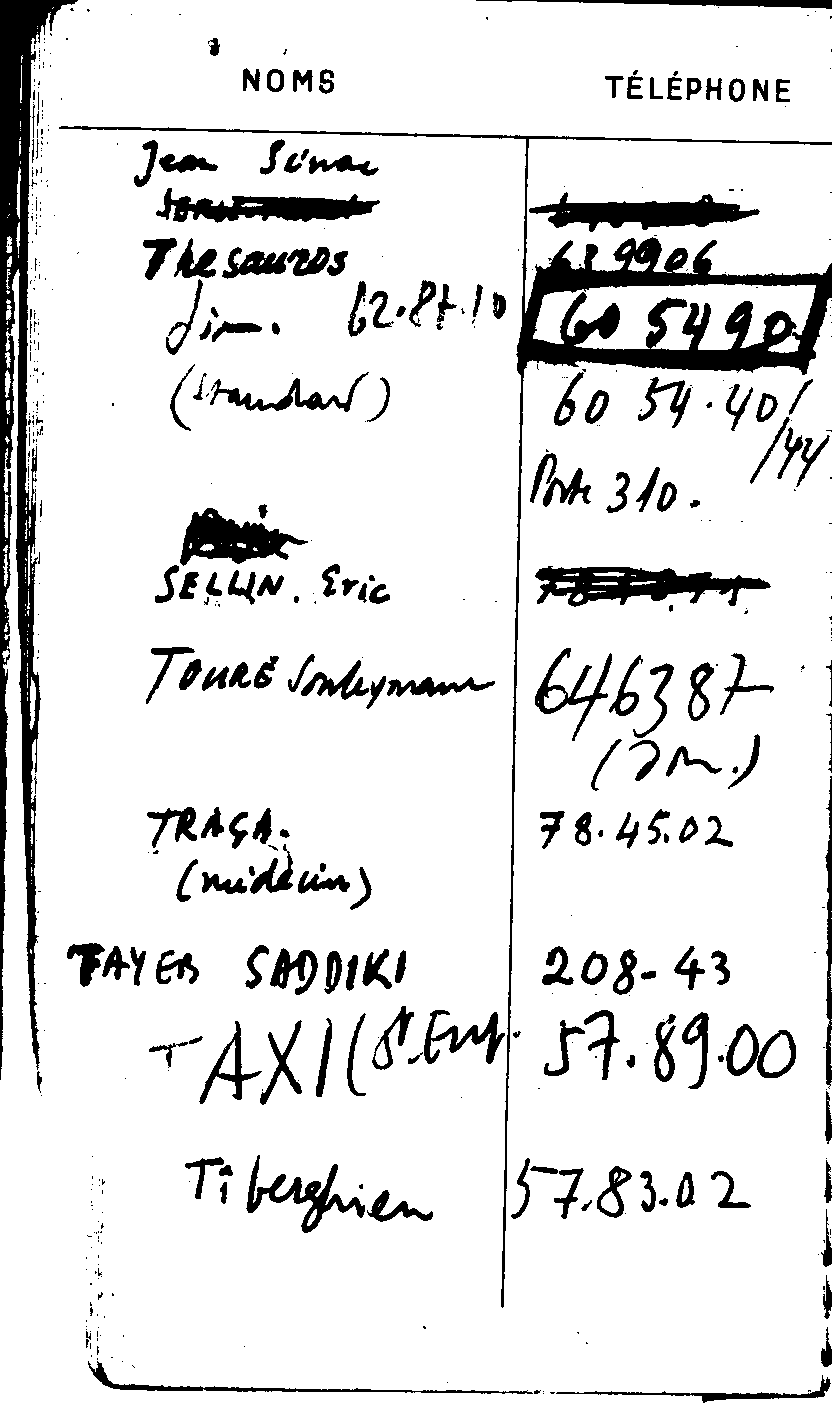 NOMS TÉLÉPHONE
Jean Sénac
Thesauros 63 9906
dir. 62.87.10 60 5490
(Standard) 60 54.40/
/44
Poste 310.
SELLIN. Eric
TOURÉ Souleymane 646387
TRAÇA. 78.45.02
(médecin)
TAYEB SADDIKI 208-43
TAXI (St. Eug. 57.89.00
Tiberghien 57.83.02